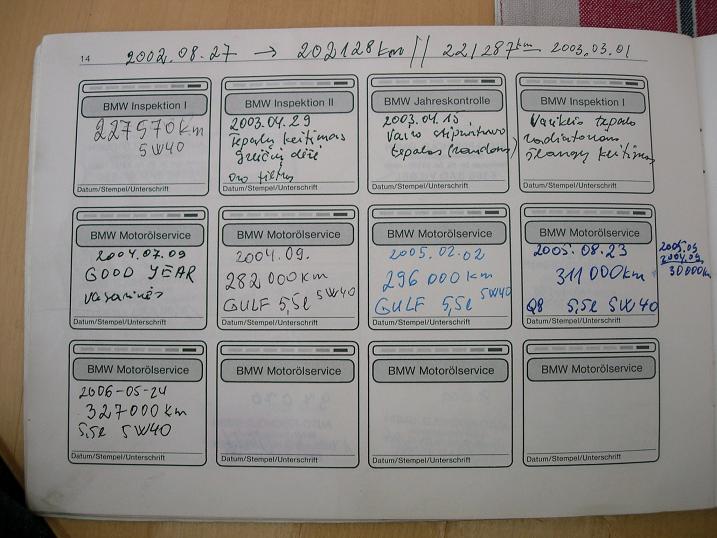 14
2002.08.27 → 202128km // 221287km 2003.03.01
BMW Inspektion I
227570km
5W40
Datum/Stempel/Unterschrift
BMW Inspektion II
2003.04.29
Tepalų keitimas
greičių dėžė
oro filtras
Datum/Stempel/Unterschrift
BMW Jahreskontrolle
2003.04.15
Vairo stiprintuvo
tepalas (raudonas)
Datum/Stempel/Unterschrift
BMW Inspektion I
Variklio tepalo
radiatoriaus
šlangų keitimas
Datum/Stempel/Unterschrift
BMW Motorölservice
2004.07.09
GOOD YEAR
vasarinės
Datum/Stempel/Unterschrift
BMW Motorölservice
2004.09.
282000km
GULF 5,5l 5W40
Datum/Stempel/Unterschrift
BMW Motorölservice
2005.02.02
296000km
GULF 5,5l 5W40
Datum/Stempel/Unterschrift
BMW Motorölservice
2005.08.23
311000km
Q8 5,5l 5W40
Datum/Stempel/Unterschrift
2005.09
2004.09.
30000km
BMW Motorölservice
2006-05-24
327000km
5,5l 5W40
Datum/Stempel/Unterschrift
BMW Motorölservice
Datum/Stempel/Unterschrift
BMW Motorölservice
Datum/Stempel/Unterschrift
BMW Motorölservice
Datum/Stempel/Unterschrift